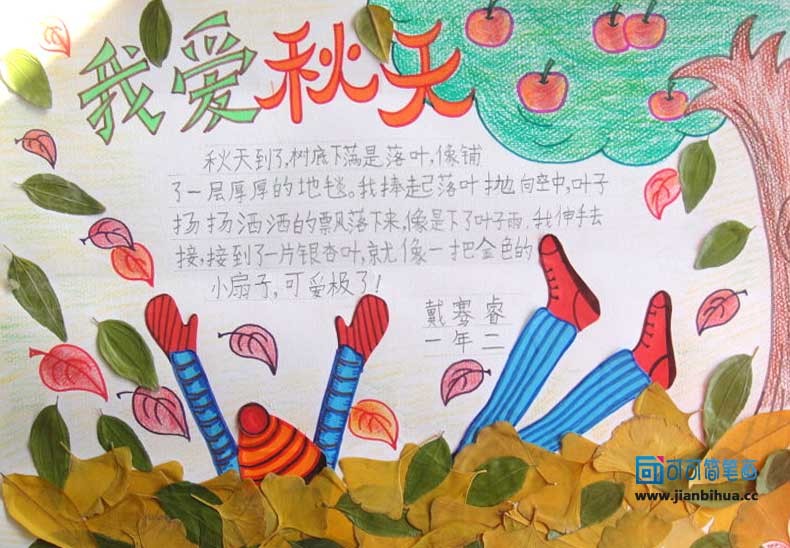 我爱秋天
秋天到了,树底下满是落叶,像铺
了一层厚厚的地毯。我捧起落叶抛向空中,叶子
扬扬洒洒的票风落下来,像是下了叶子雨。我伸手去
接,接到了一片银杏叶,就像一把金色的
小扇子,可爱极了!
戴骞睿
一年二
可可简笔画
www.jianbihua.cc